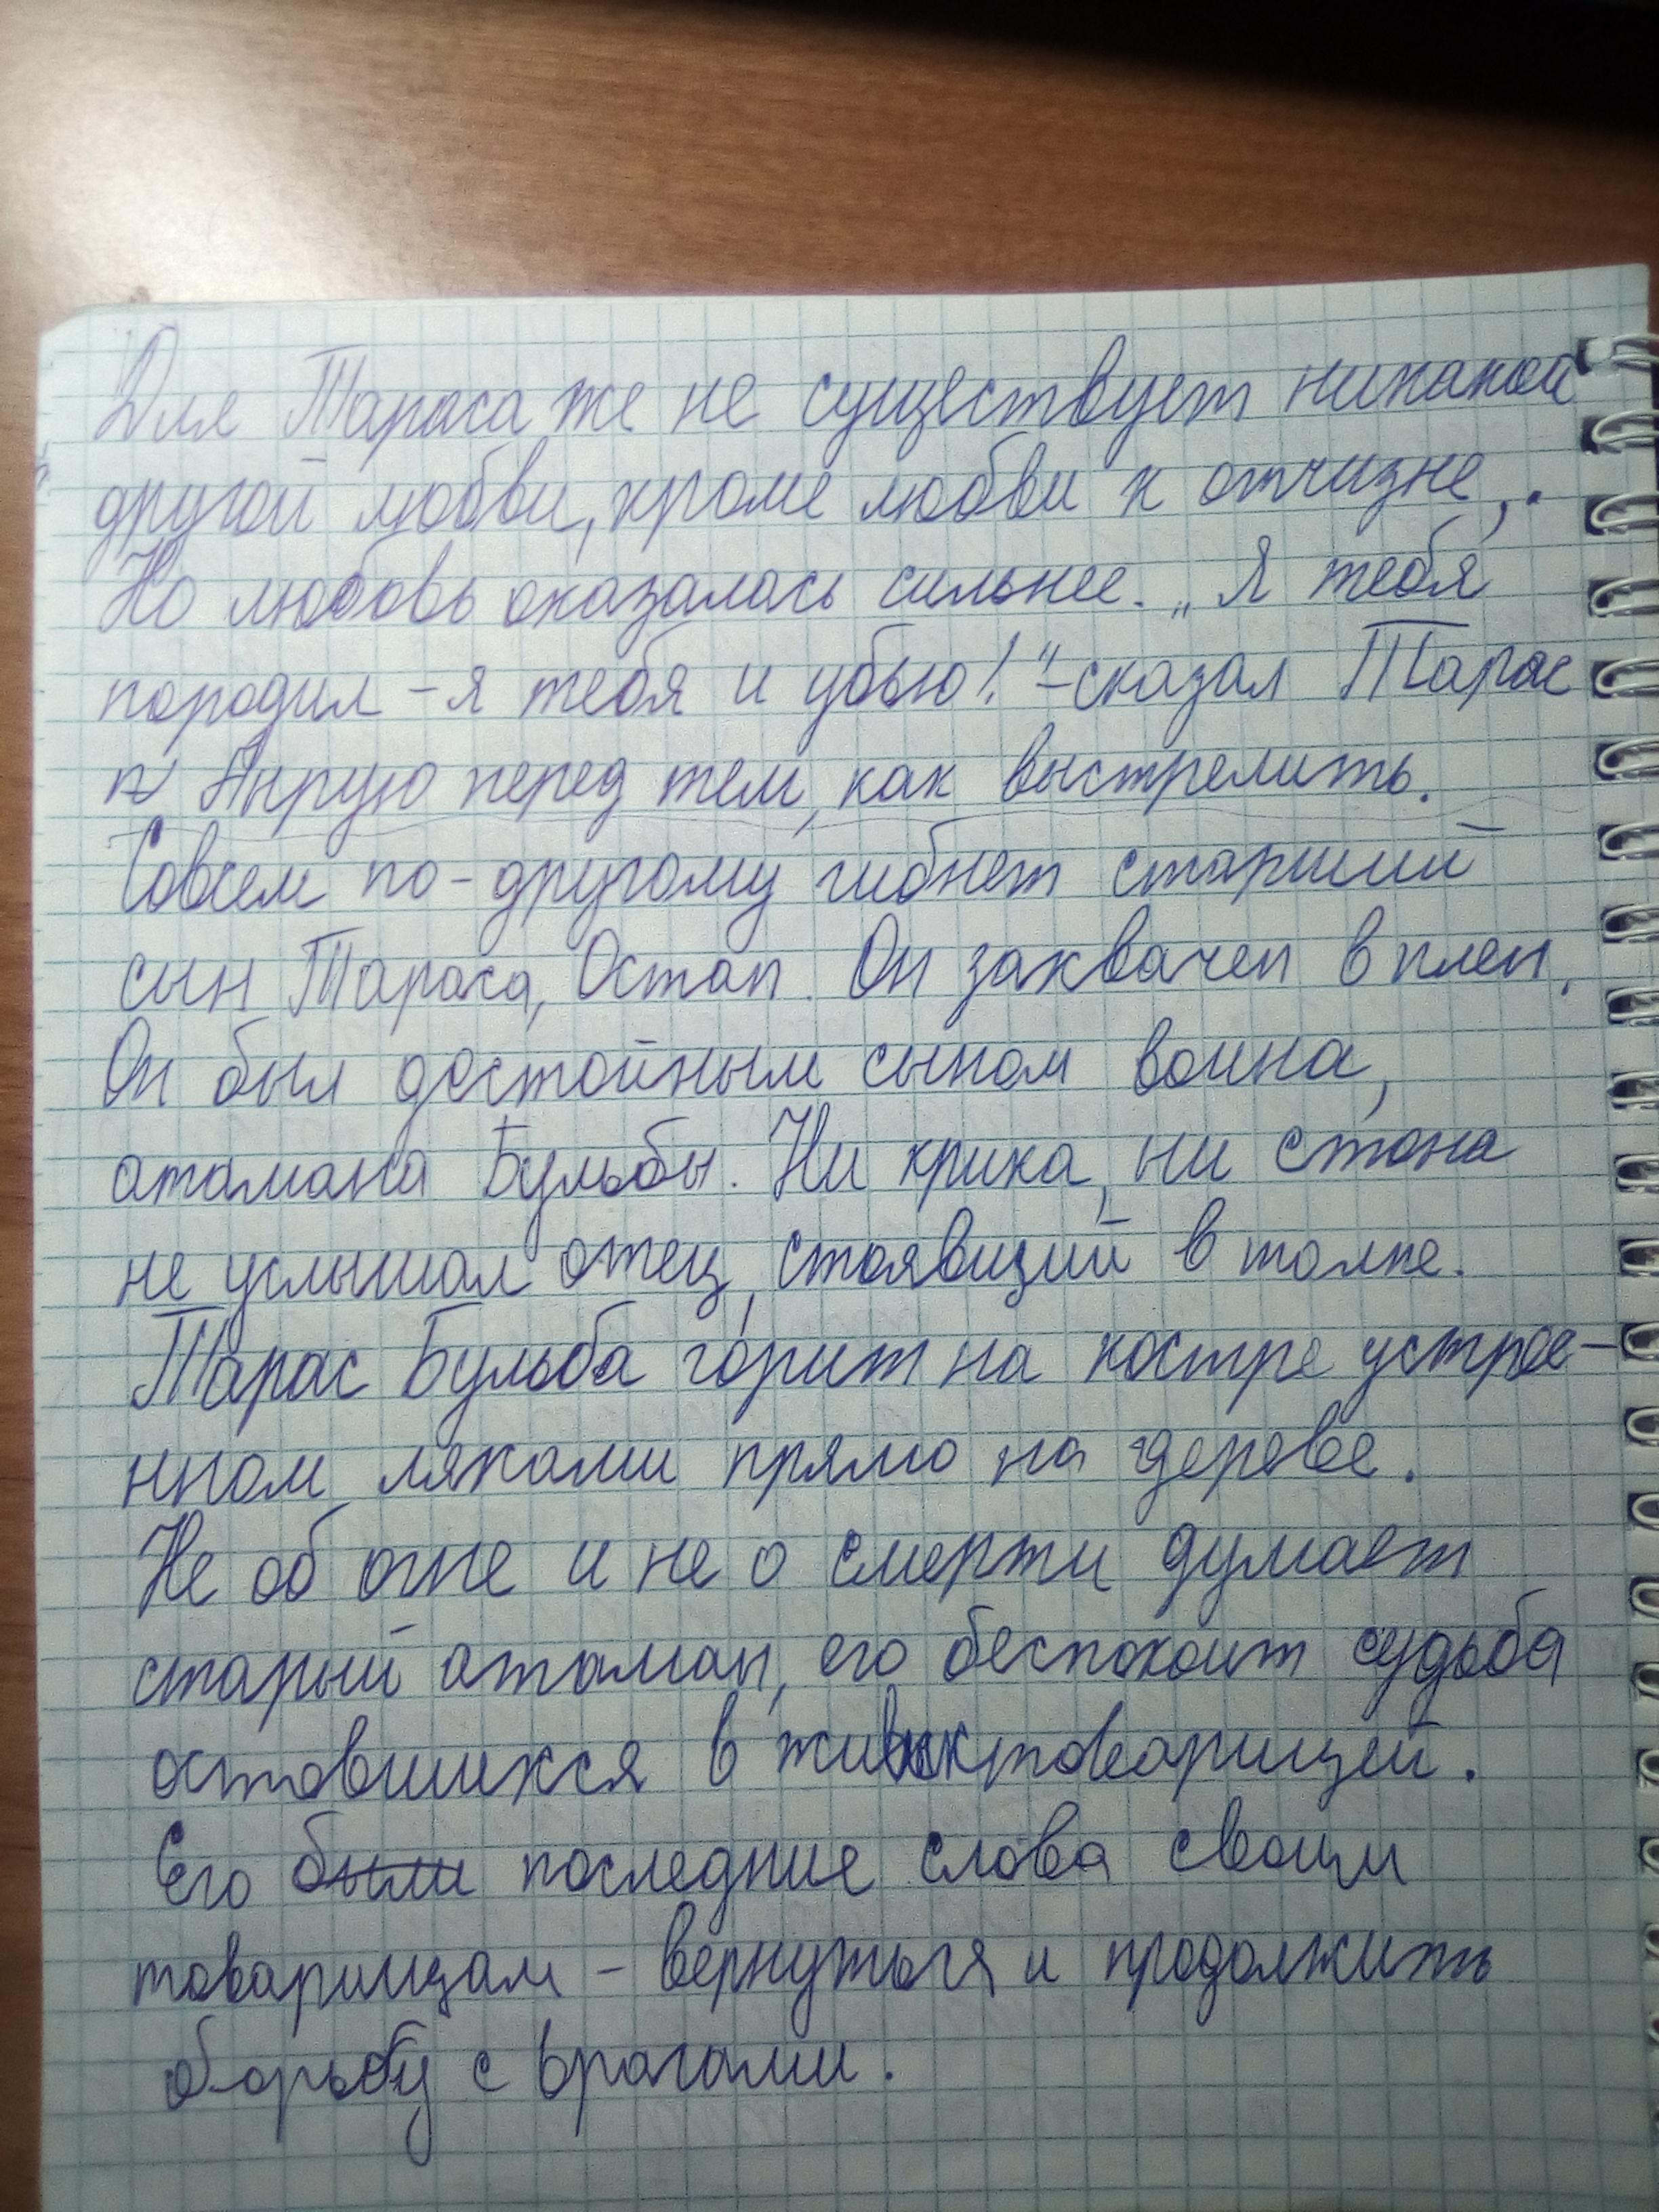 Для Тараса же не существует никакой
другой любви, кроме любви к отчизне,.
Но любовь оказалась сильнее. „Я тебя
породил - я тебя и убью!" - сказал Тарас
к Анрую перед тем, как выстрелить.
Совсем по-другому гибнет старший
сын Тараса, Остап. Он захвачен в плен.
Он был достойным сыном воина,
атамана Бульбы. Ни крика, ни стона
не услышал отец, стоявщий в толпе.
Тарас Бульба горит на костре устрое-
нном ляками прямо на дереве.
Не об огне и не о смерти думает
старый атаман, его беспокоит судьба
оставшихся в живых товарищей.
Его были последние слова своим
товарищам - вернуться и продолжить
борьбу с врагами.